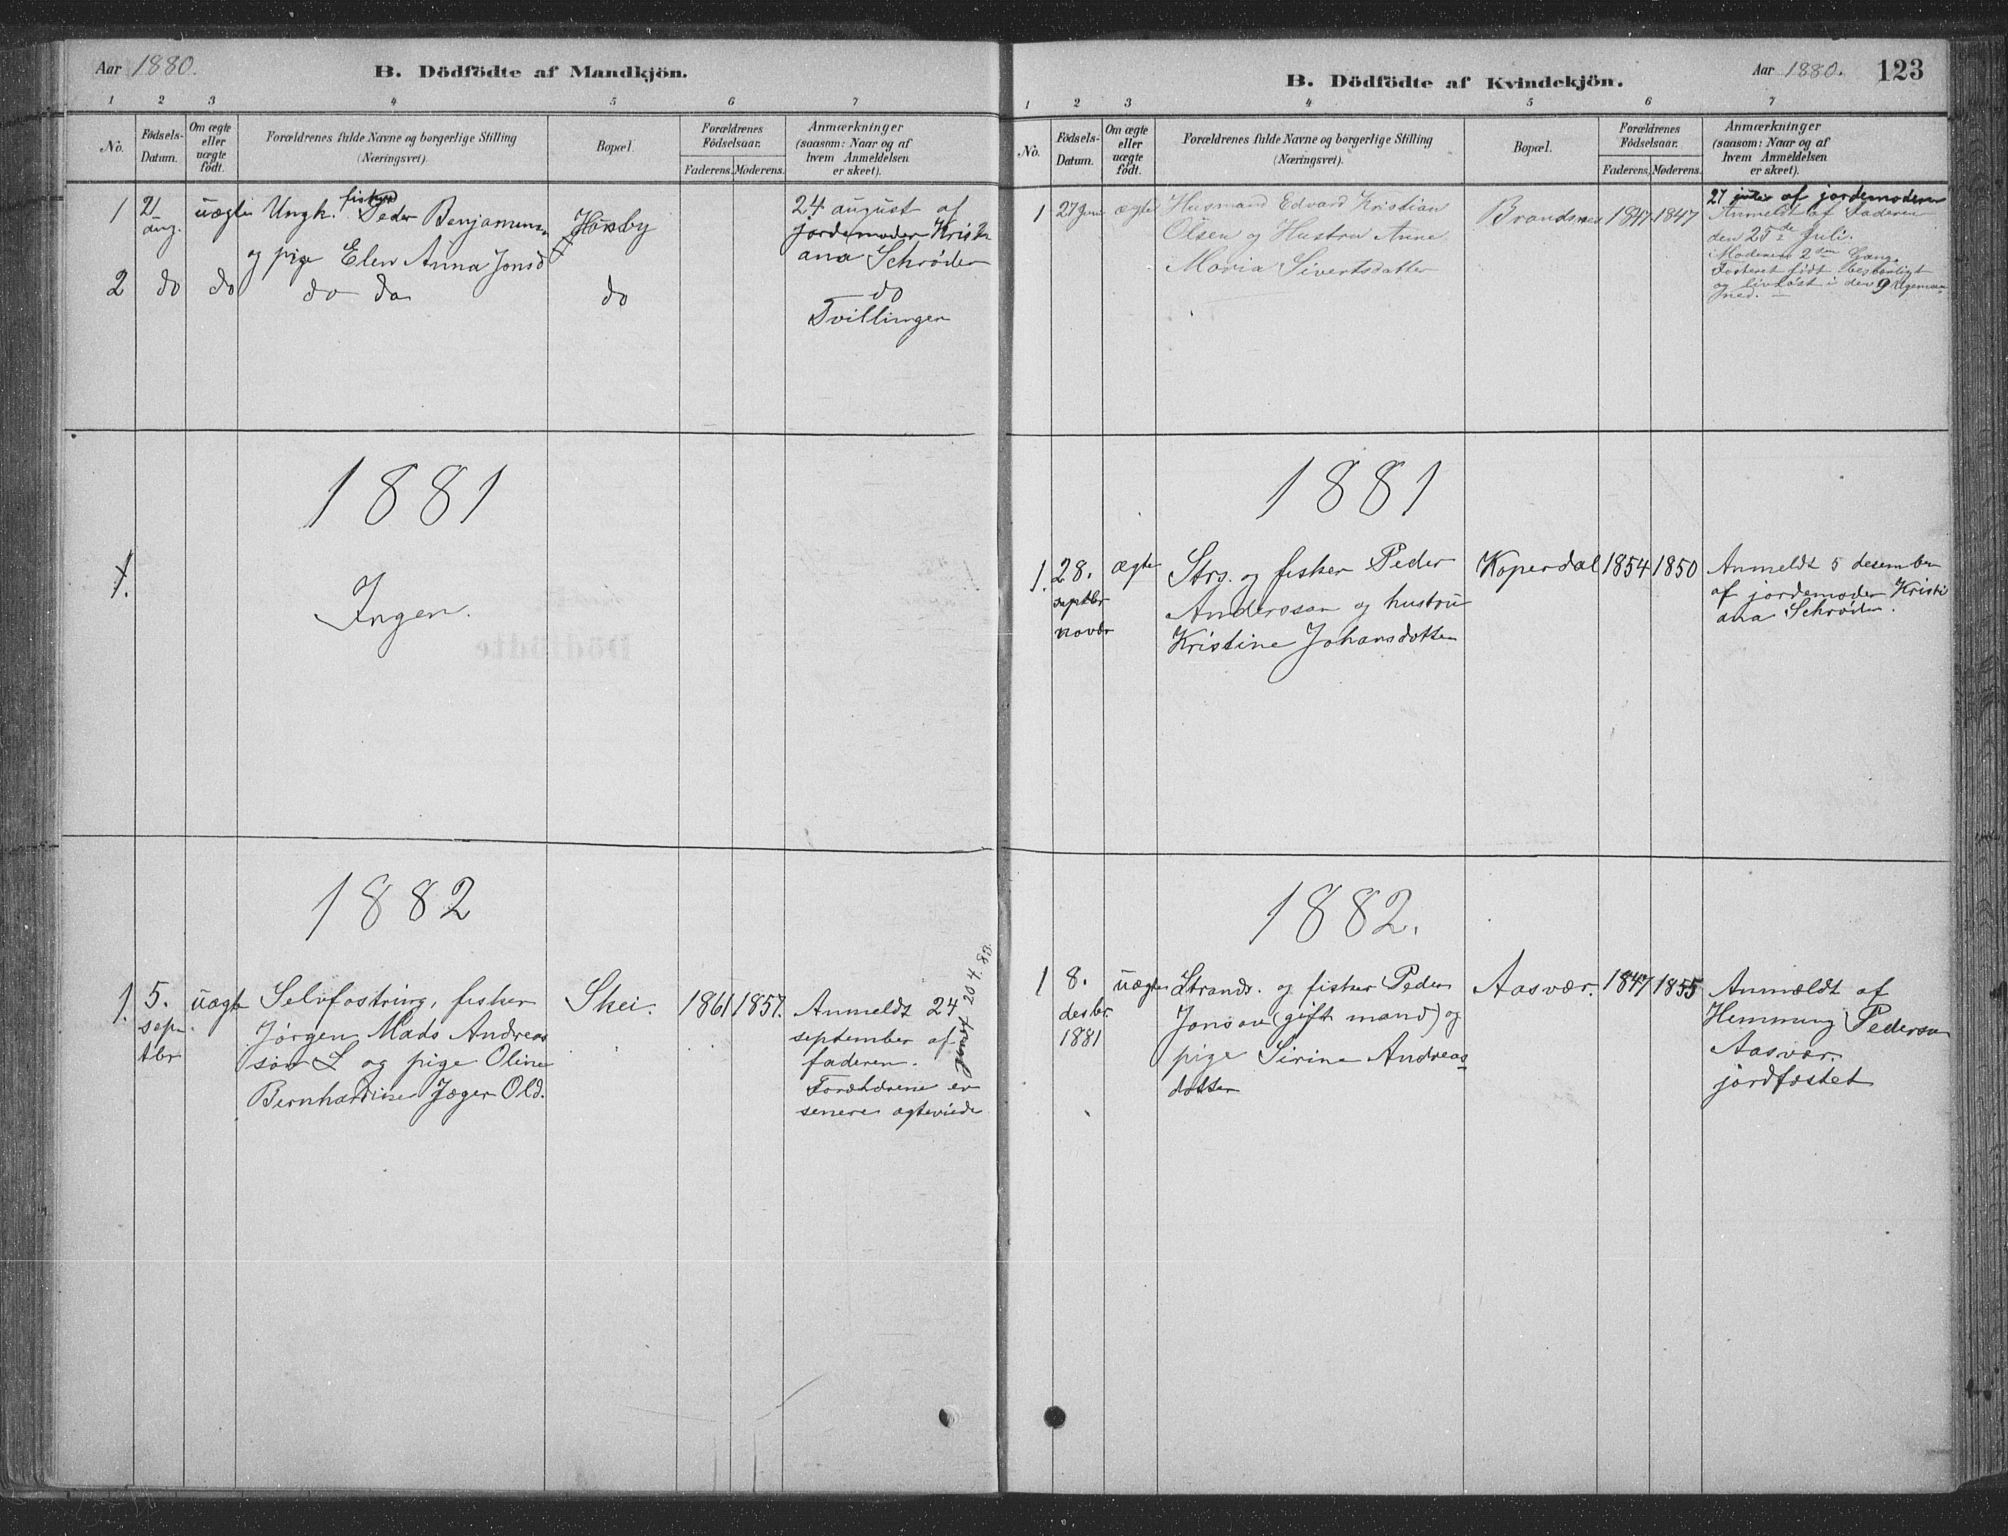 Aar 1880.
B. Dödfödte af Mandkjön.
1 2 3 4 5 6 7
No.
Födsels-
Datum.
Om ægte
eller
uægte
födt.
Forældrenes fulde Navne og borgerlige Stilling
(Næringsvei).
Bopæl.
Forældrenes
Födselsaar.
Faderens. Moderens.
Anmærkninger
(saasom: Naar og af
hvem Anmeldelsen
er skeet).
1
21
aug.
uægte
fisker
Ungk. Peder Benjamins.
og pige Elen Anna Jonsd
Husby
24 august af
jordemoder Kristi
ana Schrøder
2
do
do
do do
do
do
Tvillinger
1881
1.
Ingen.
1882
1.
5.
sep-
tbr
uægte
Selvfostring, fisker
Jørgen Mads Andreas
søn L og pige Oline
Bernhardine Jæger Old.
Skei.
1861
1857.
Anmeldt 24
september af
faderen.
Forældrene er
senere ægteviede
20 4. 83.
B. Dödfödte af Kvindekjön.
Aar 1880.
123
1 2 3 4 5 6 7
No.
Födsels-
Datum.
Om ægte
eller
uægte
födt.
Forældrenes fulde Navne og borgerlige Stilling
(Næringsvei).
Bopæl.
Forældrenes
Födselsaar.
Faderens. Moderens.
Anmærkninger
(saasom: Naar og af
hvem Anmeldelsen
er skeet).
1
27 Juni
ægte
Husmand Edvard Kristian
Olsen og Hustru Anne
Maria Sivertsdatter
Brandsnes
1847
1847
27 af jordemoderen
Anmeldt af Faderen
den 25de Juli.
Moderens 2den Gang.
Fosteret født
og livløst i den 9
1881
1.
28.
septbr
novbr
ægte
Strs. og fisker Peder
Anderssøn og hustru
Kristine Johansdatter
Koperdal
1854
1850
Anmeldt 5 desember
af jordemoder Kristi
ana Schrøder.
1882.
1
8.
desbr.
1881
uægte
Strands. og fisker Peder
Jonsøn (gift mand) og
pige Sirine Andreas-
datter
Aasvær.
1847
1855
Anmældt af
Hemming Pederson
Aasvær.
jordfæstet